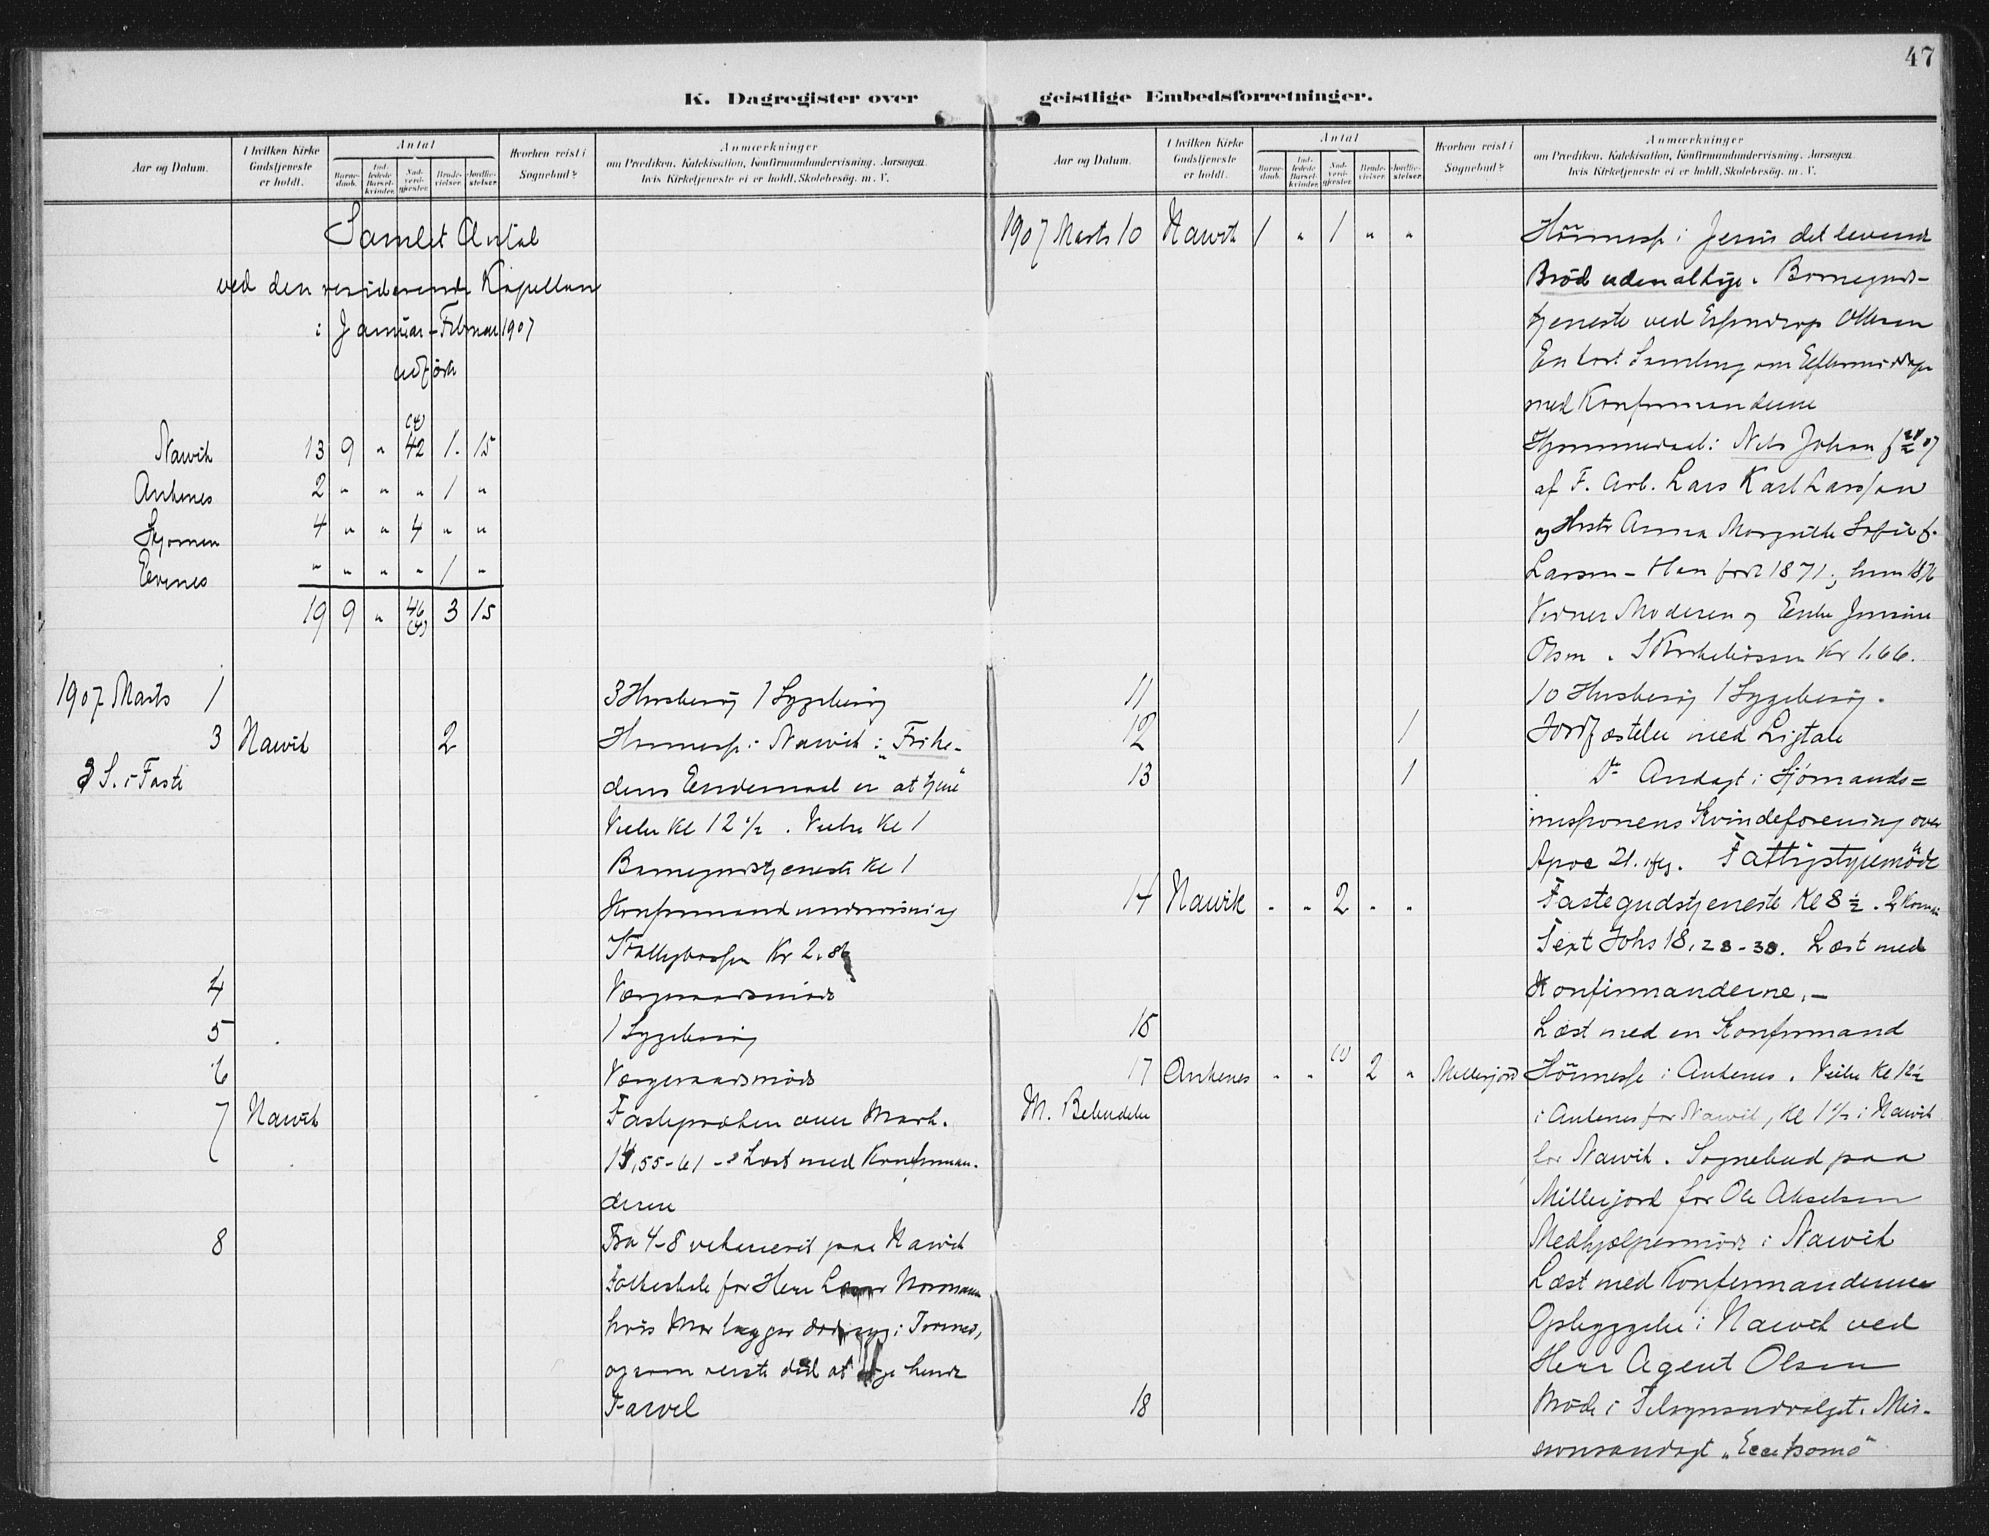 47
K. Dagregister over geistlige Embedsforretninger.
Aar og Datum. I hvilken Kirke Gudstjeneste er holdt. Antal Barnedaab. Indledede Barselkvinder. Nadverdgjester. Brudevielser. Jordfæstelser. Hvorhen reist i Sognebud? Anmærkninger om Prædiken, Katekisation, Konfirmandundervisning, Aarsagen, hvis Kirketjeneste ei er holdt, Skolebesøg m. V.
Samlet Antal
ved den residerende Kapellan
i Januar-Februar 1907
udført
Narvik 13 9 " 42 1. 15
Ankenes 2 " " " 1 "
Skjomen 4 " " 4 " "
Evenes " " " " 1 "
19 9 " 46 3 15
1907 Marts 1 3 Husbesøg 1 Sygebesøg
3 Narvik 2 Høimesse i Narvik: "Frihe-
3 S. i Faste dens Eendemaal er at tjene"
Vielse Kl 12 1/2. Vielse Kl 1
Barnegudstjeneste Kl 1
Konfirmandundervisning
Kr 2.86
4 Værgeraadsmøde
5 1 Sygebesøg
6 Værgeraadsmøde
7 Narvik Fasteprædken over Mark.
15,55-61 - Læst med Konfirman-
derne
8 Fra 4-8 vikarierit paa Narvik
Folkeskole for Herr Normann
hvis Mor ligger i Tromsø,
og som reiste did at sige hende
Farvel
Aar og Datum. I hvilken Kirke Gudstjeneste er holdt. Antal Barnedaab. Indledede Barselkvinder. Nadverdgjester. Brudevielser. Jordfæstelser. Hvorhen reist i Sognebud? Anmærkninger om Prædiken, Katekisation, Konfirmandundervisning, Aarsagen, hvis Kirketjeneste ei er holdt, Skolebesøg m. V.
1907 Marts 10 Narvik 1 " 1 " " Høimesse i Jesus det levende
Brød uden altige. Barneguds-
tjeneste ved Ottesen
En kort Samling om Eftermiddagen
med Konfirmanderne
Hjemmedaab: Nils Johan f
af F. Arb. Lars Karl Larssen
og Hustr Anna Margrethe Sofie f.
Larsen - Han født 1871, hun 1876
Vidner Moderen og
Olsen. I Kirkebøssen Kr 1.66.
11 10 Husbesøg 1 Sygebesøg.
12 1 Jordfæstelse med Ligtale
13 1 Do Andagt i Sjømands-
missionens Kvindeforening over
Apoc 21. Fattigstyremøde
14 Narvik " " 2 " " Fastegudstjeneste Kl 8 1/2. 2 Komm
Text Johs 18,28-38. Læst med
Konfirmanderne. -
15 Læst med en Konfirmand
17 Ankenes " " (1) 2 " Millerjord Høimesse i Ankenes. Vielse Kl 12 1/2
M. Bebudelse i Ankenes for Narvik, Kl 1 1/2 i Narvik
for Narvik. Sognebud paa
Millerjord for Ole Akselsen
Medhjælpermøde i Narvik
Læst med Konfirmanderne
Opbyggelse i Narvik ved
Herr Agent Olsen
18 Møde i Tilsynsudvalget. Mis-
sionsandagt "Ecce homo"